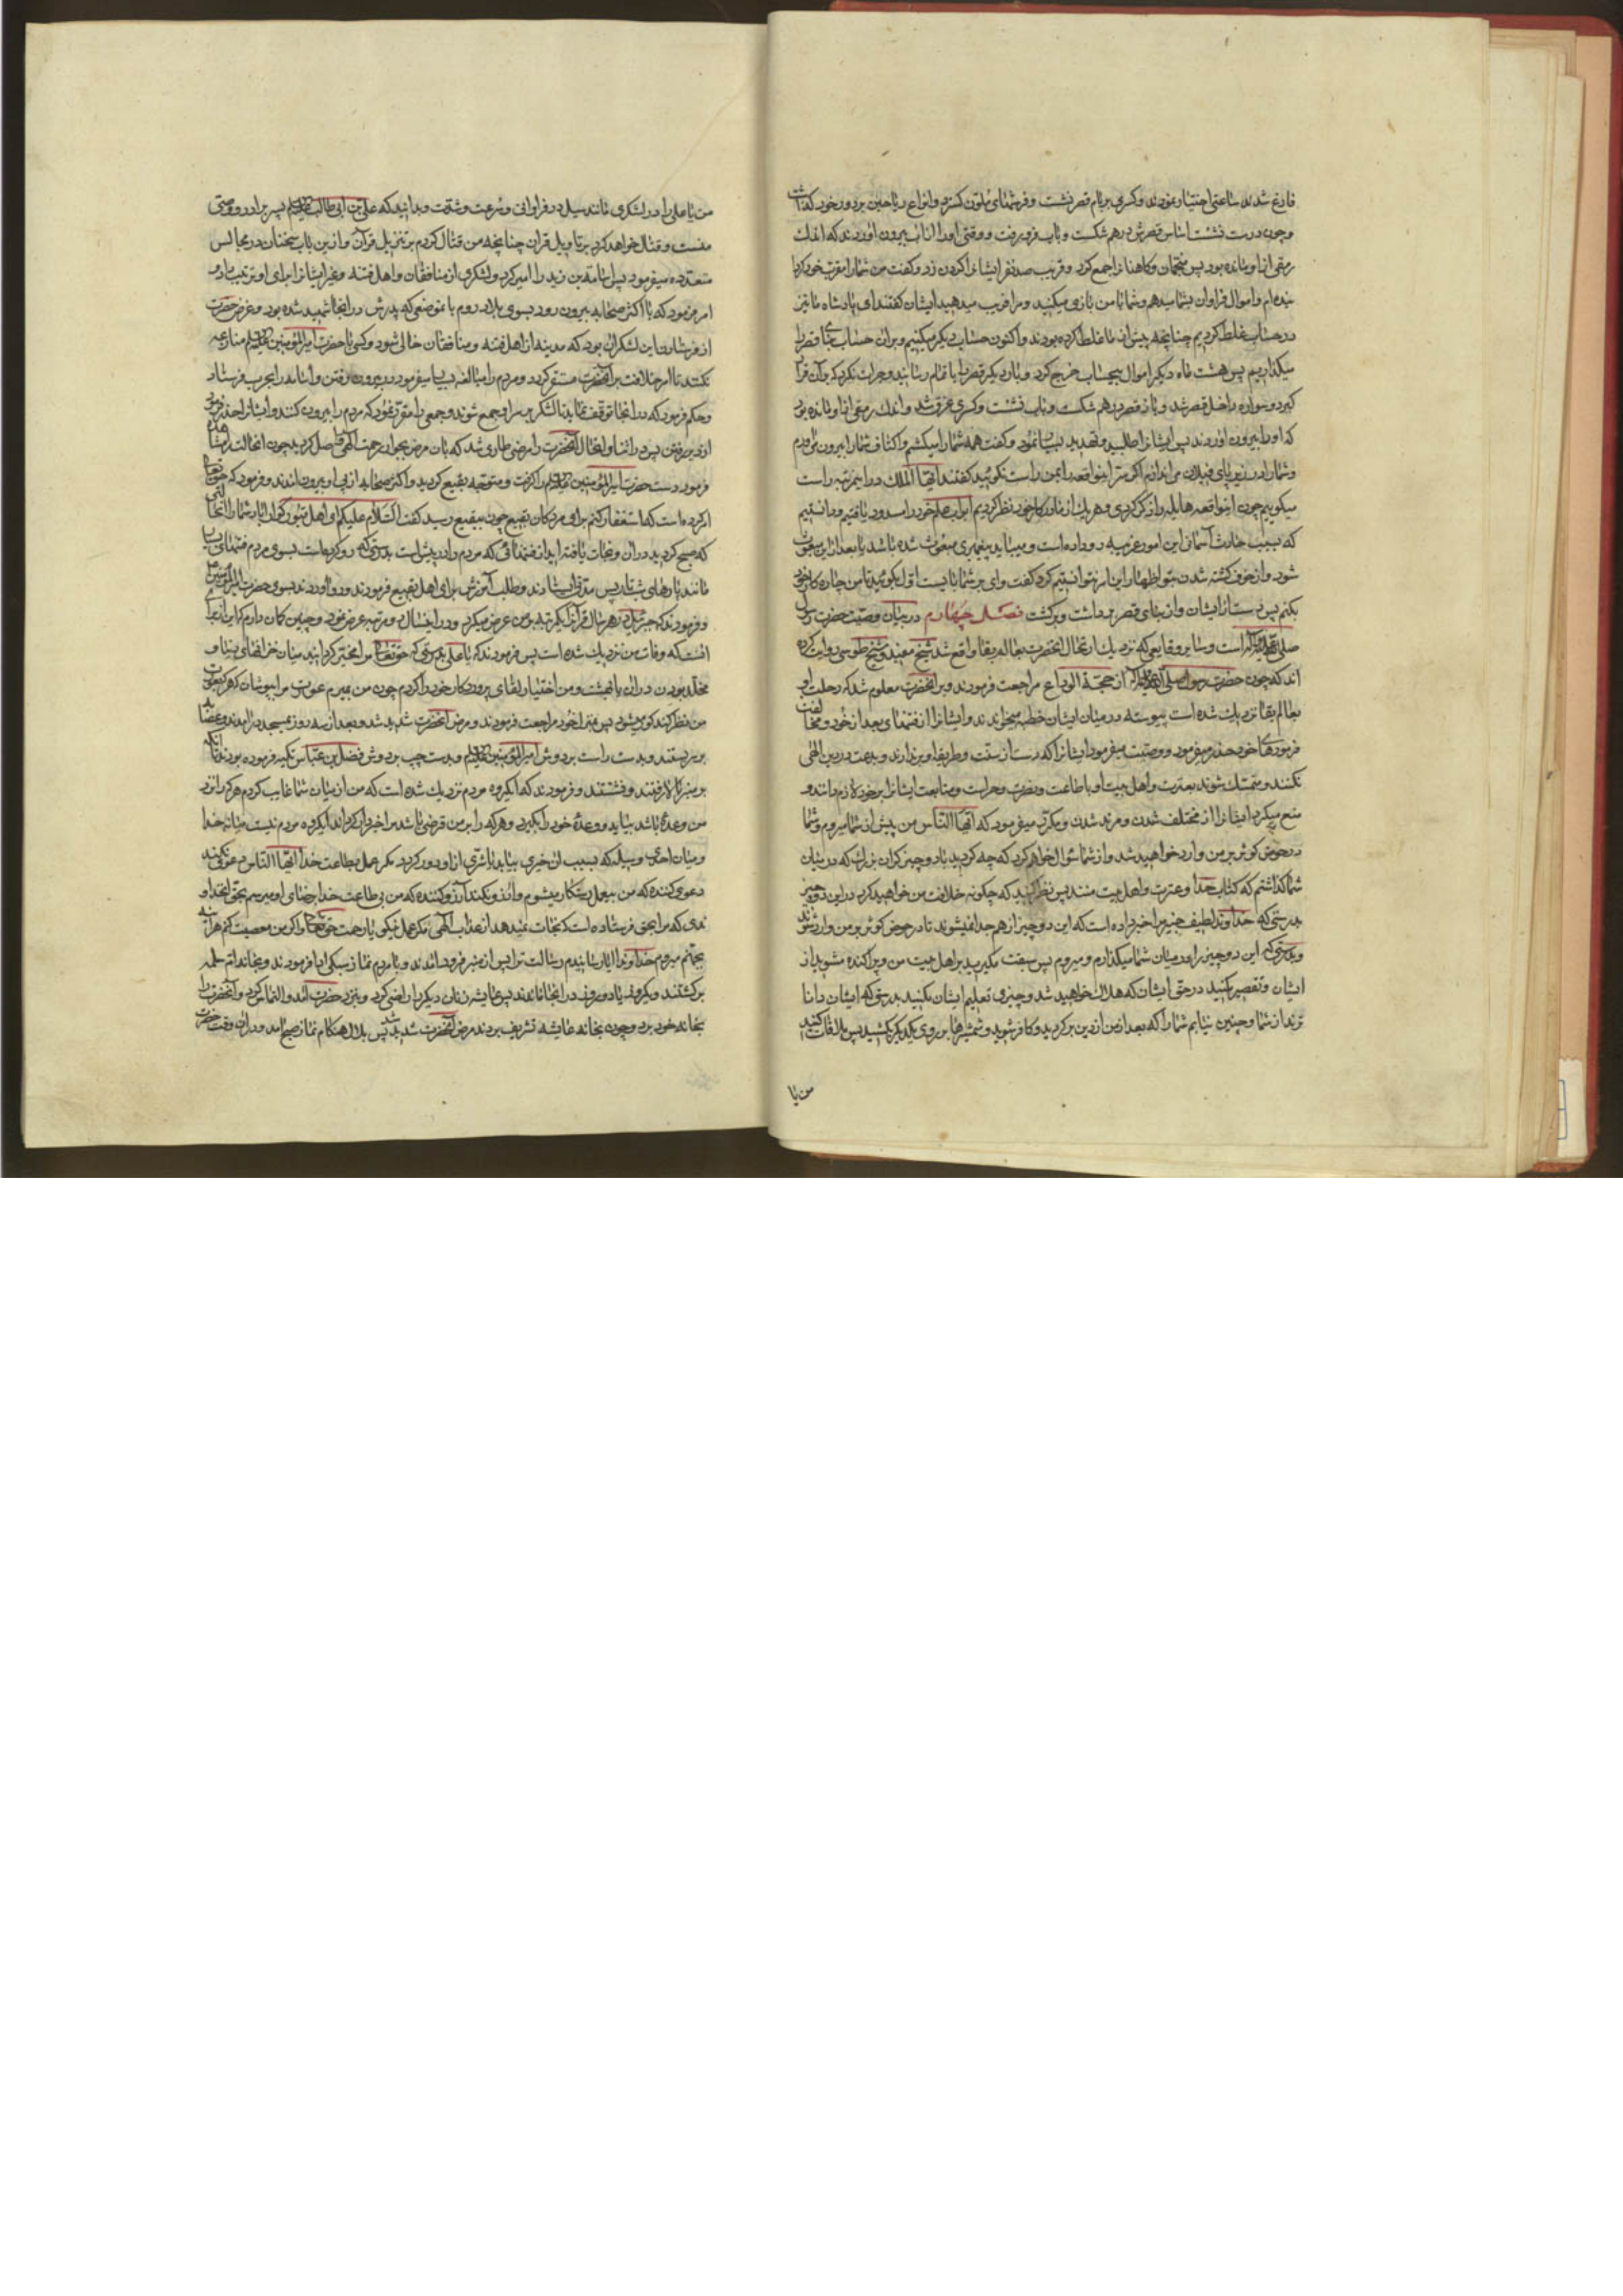 فارغ شدند ساعتی اختیار نمودند و کسری بر بام قصر نشست و فرشهای ملون کسترد و انواع ریاحین بر دور خود کذاشت
و چون درست نشست اساس قصرش درهم شکست و بآب فرو رفت و وقتی او را از آب بیرون اوردند که اندک
رمقی از او مانده بود پس منجمان و کاهنان را جمع کرد و قریب صد نفر ایشانرا کردن زد و کفت من شما را مقرب خود کرد
بنده‌ام و اموال فراوان بشما میدهم و شما با من بازی میکنید و مرا فریب میدهید ایشان کفتند ای پادشاه ما نیز
در حساب غلط کردیم چنانچه پیش از ما غلط کرده بودند و اکنون حساب دیکر میکنیم و بران حساب بنای قصر را
میکذاریم پس هشت ماه دیکر اموال بیحساب خرج کرد و بار دیکر قصر را باتمام رسانید و جرات نکرد که بر آن قرار
کیرد و سواره داخل قصر شد و باز قصر درهم شکست و بآب نشست و کسری غرق شد و اندک رمقی از او مانده بود
که او را بیرون اوردند پس ایشانرا طلبید و تهدید بسیار نمود و کفت همه شما را میکشم و اکتاف شما را بیرون می‌اورم
و شما را در زیر پای فیلان می‌اندازم اکر سر اینواقعه را بمن راست نکوئید کفتند ایها الملک در این مرتبه راست
میکوییم چون اینواقعه هایله رو داد و هر یک از ما در کار خود نظر کردیم ابواب علم خود را مسدود یافتیم و دانستیم
که بسبب حادث آسمانی این امور غریبه رو داده است و میباید پیغمبری مبعوث شده باشد یا بعد از این مبعوث
شود و از خوف کشته شدن بتو اظهار این امر نتوانستیم کرد کفت وای بر شما بایست اول بکوئید تا من چاره کار خود
بکنم پس دست از ایشان و از بنای قصر برداشت و برکشت فصل چهارم در بیان وصیت حضرت رسول
صلی الله علیه و آله است و سایر وقایعی که نزدیک ارتحال انحضرت بعالم بقا واقع شد شیخ مفید و شیخ طوسی روایت کرده
اند که چون حضرت رسول صلی الله علیه و آله از حجة الوداع مراجعت فرمودند و بر انحضرت معلوم شد که رحلت او
بعالم بقا نزدیک شده است پیوسته در میان ایشان خطبه میخواندند و ایشانرا از فتنهای بعد از خود و مخالفت
فرمودهای خود حذر میفرمود و وصیت میفرمود ایشانرا که دست از سنت و طریقه او بر ندارند و بدعت در دین الهی
نکنند و متمسک شوند بعترت و اهل بیت او باطاعت و نصرت و حراست و متابعت ایشانرا بر خود لازم دانند و
منع میکرد ایشانرا از مختلف شدن و مرتد شدن و مکرر میفرمود که ایها الناس من پیش از شما میروم و شما
در حوض کوثر بر من وارد خواهید شد و از شما سؤال خواهم کرد که چه کردید با دو چیز کران بزرک که در میان
شما کذاشتم که کتاب خدا و عترت و اهل بیت منند پس نظر کنید که چکونه خلافت من خواهید کرد در این دو چیز
بدرستی که خداوند لطیف خبیر مرا خبر داده است که این دو چیز از هم جدا نمیشوند تا در حوض کوثر بر من وارد شوند
و بدرستی که این دو چیز را در میان شما میکذارم و میروم پس سبقت مکیرید بر اهل بیت من و پراکنده مشوید از
ایشان و تقصیر مکنید در حق ایشان که هلاک خواهید شد و چیزی تعلیم ایشان مکنید بدرستی که ایشان دانا
ترند از شما و چنین نیابم شما را که بعد از من از دین برکردید و کافر شوید و شمشیرها بر روی یکدیکر بکشید پس ملاقات کنید
من یا
من یا علی را در لشکری مانند سیل در فراوانی و سرعت و شدت و بدانید که علی بن ابی طالب علیه السلام پس برادر و وصی
منست و قتال خواهد کرد بر تاویل قران چنانچه من قتال کردم بر تنزیل قرآن و از این باب سخنان در مجالس
متعدده میفرمود پس اسامة بن زید را امیر کرد و لشکری از منافقان و اهل فتنه و غیر ایشانرا برای او ترتیب داد و
امر فرمود که با اکثر صحابه بیرون رود بسوی بلاد روم بانموضعی که پدرش در انجا شهید شده بود و غرض حضرت
از فرستادن این لشکر ان بود که مدینه از اهل فتنه و منافقان خالی شود و کسی با حضرت امیرالمؤمنین علیه السلام منازعه
نکند تا امر خلافت بر آنحضرت مستقر کردد و مردم را مبالغه بسیار میفرمود در بیرون رفتن و اسامه را بجرف فرستاد
و حکم فرمود که در انجا توقف نماید تا لشکر بر سر او جمع شوند و جمعی را مقرر نمود که مردم را بیرون کنند و ایشانرا حذر فرمود
از دیر رفتن پس در اثنای اینحال آنحضرت را مرضی طاری شد که بان مرض بجوار رحمت الهی واصل کردید چون انحالت را مشاهده
فرمود دست حضرت امیرالمؤمنین علیه السلام را کرفت و متوجه بقیع کردید و اکثر صحابه از پی او بیرون امدند و فرمود که حق تعالی
امر کرده است که استغفار کنم برای مردکان بقیع چون ببقیع رسید کفت السلام علیکم ای اهل قبور کوارا باد شما را انحالتی
که صبح کردید در ان و نجات یافته‌اید از فتنهائی که مردم را در پیش است بدرستی که رو کرده است بسوی مردم فتنهای بسیار
مانند پارهای شب تار پس مدتی ایستادند و طلب آمرزش برای اهل بقیع فرمودند و رو اوردند بسوی حضرت امیرالمؤمنین
و فرمودند که جبرئیل در هر سال قرآنرا یکمرتبه بر من عرض میکرد و در اینسال دو مرتبه عرض نمود و چنین کمان دارم که این از برای
انست که وفات من نزدیک شده است پس فرمودند که یا علی بدرستی که حق تعالی مرا مخیر کردانید میان خزانهای دنیا و
مخلد بودن در ان یا بهشت و من اختیار لقای پروردکار خود را کردم چون من بمیرم عورت مرا بپوشان که هر که بعورت
من نظر کند کور میشود پس بمنزل خود مراجعت فرمودند و مرض انحضرت شدید شد و بعد از سه روز بمسجد درامدند و عصابه
بر سر بستند و بدست راست بر دوش امیرالمؤمنین علیه السلام و بدست چپ بر دوش فضل بن عباس تکیه فرموده بودند تا انکه
بر منبر بالا رفتند و نشستند و فرمودند که ایکروه مردم نزدیک شده است که من از میان شما غایب کردم هر که را نزد
من وعدهٔ باشد بیاید و وعدهٔ خود را بکیرد و هر که را بر من قرضی باشد مرا خبردار کرداند ایکروه مردم نیست میانه خدا
و میان احدی وسیلهٔ که بسبب ان خیری بیابد یا شری از او دور کردد مکر عمل بطاعت خدا ایها الناس دعوی نکند
دعوی کننده که من بیعمل رستکار میشوم و آرزو نکند آرزو کننده که من بی طاعت خدا برضای او میرسم بحق انخداو
ندی که مرا بحق فرستاده است که نجات نمیدهد از عذاب الهی مکر عمل نیکو با رحمت حق تعالی و اکر من معصیت کنم هراینه
بجهنم میروم خداوندا ایا رسانیدم رسالت ترا پس از منبر فرود امدند و با مردم نماز سبکی ادا فرمودند و بخانه ام سلمه
برکشتند و یکروز یا دو روز در انجا ماندند پس عایشه زنان دیکر را راضی کرد و بنزد حضرت آمد و التماس کرد و آنحضرت را
بخانه خود برد و چون بخانه عایشه تشریف بردند مرض آنحضرت شدید شد پس بلال هنکام نماز صبح امد و در ان وقت حضرت